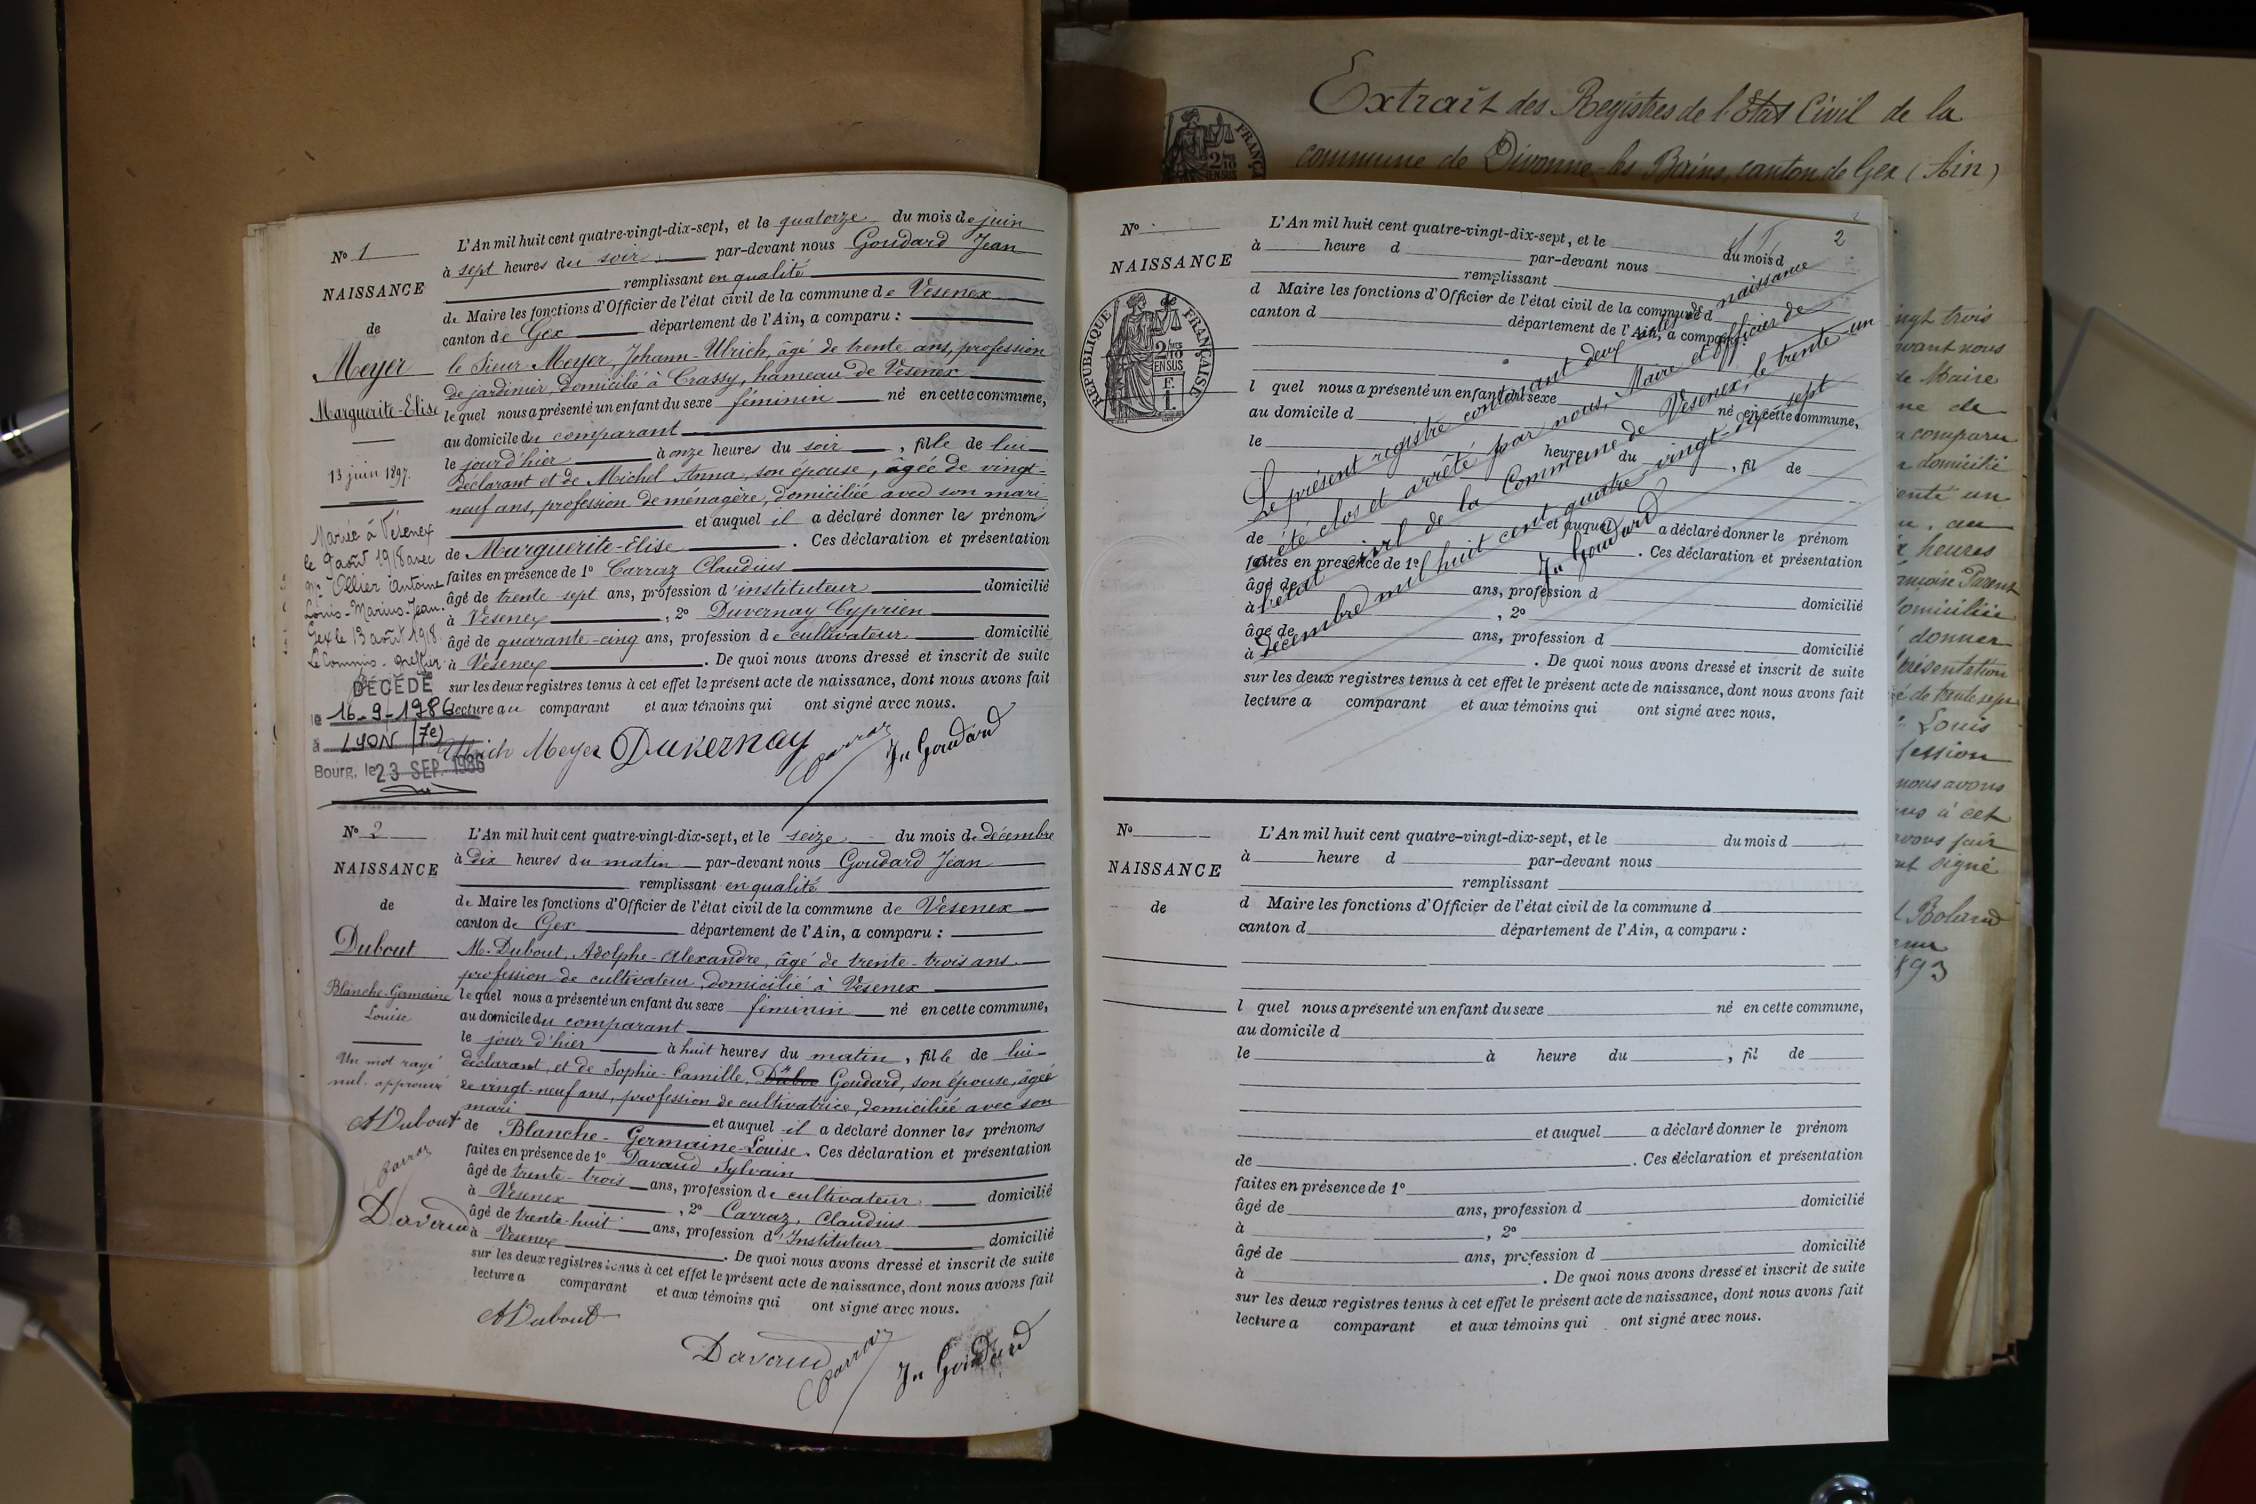 Extrait des Registres de l'Etat Civil de la
commune de Divonne-les-Bains, canton de Gex (Ain)
N° 1
NAISSANCE
de
Meyer
Marguerite-Elise
13 juin 1897.
Mariée à Vésenex
le 9 août 1918 avec
Mr Ollier Antoine
Louis-Marius-Jean.
Gex le 13 août 1918.
Le Commis-greffier
DÉCÉDÉ
le 16-9-1986
à LYON (7e)
Bourg, le 23 SEP. 1986
L'An mil huit cent quatre-vingt-dix-sept, et le quatorze du mois de juin
à sept heures du soir par-devant nous Goudard Jean
remplissant en qualité
de Maire les fonctions d'Officier de l'état civil de la commune de Vesenex
canton de Gex département de l'Ain, a comparu :
le Sieur Meyer, Johann-Ulrich, âgé de trente ans, profession
de jardinier, domicilié à Crassy, hameau de Vesenex
lequel nous a présenté un enfant du sexe féminin né en cette commune,
au domicile du comparant
le jour d'hier à onze heures du soir, fille de lui
déclarant et de Michel Anna, son épouse, âgée de vingt-
neuf ans, profession de ménagère, domiciliée avec son mari
et auquel il a déclaré donner les prénoms
de Marguerite-Elise. Ces déclaration et présentation
faites en présence de 1° Carraz Claudius
âgé de trente-sept ans, profession d'instituteur domicilié
à Vesenex, 2° Duvernay Cyprien
âgé de quarante-cinq ans, profession de cultivateur domicilié
à Vesenex. De quoi nous avons dressé et inscrit de suite
sur les deux registres tenus à cet effet le présent acte de naissance, dont nous avons fait
lecture au comparant et aux témoins qui ont signé avec nous.
Ulrich Meyer Duvernay Carraz Jn Goudard
N° 2
NAISSANCE
de
Dubout
Blanche-Germaine
Louise
Un mot rayé
nul. approuvé
ADubout
Carraz
Davaud
L'An mil huit cent quatre-vingt-dix-sept, et le seize du mois de décembre
à dix heures du matin par-devant nous Goudard Jean
remplissant en qualité
de Maire les fonctions d'Officier de l'état civil de la commune de Vesenex
canton de Gex département de l'Ain, a comparu :
M. Dubout, Adolphe-Alexandre, âgé de trente-trois ans
profession de cultivateur, domicilié à Vesenex
lequel nous a présenté un enfant du sexe féminin né en cette commune,
au domicile du comparant
le jour d'hier à huit heures du matin, fille de lui
déclarant, et de Sophie-Camille, Goudard, son épouse, âgée
de vingt-neuf ans, profession de cultivatrice, domiciliée avec son
mari et auquel il a déclaré donner les prénoms
de Blanche-Germaine-Louise. Ces déclaration et présentation
faites en présence de 1° Davaud Sylvain
âgé de trente-trois ans, profession de cultivateur domicilié
à Vesenex, 2° Carraz, Claudius
âgé de trente-huit ans, profession d'Instituteur domicilié
à Vesenex. De quoi nous avons dressé et inscrit de suite
sur les deux registres tenus à cet effet le présent acte de naissance, dont nous avons fait
lecture a comparant et aux témoins qui ont signé avec nous.
ADubout
Davaud Carraz Jn Goudard
2
N°
NAISSANCE
de
RÉPUBLIQUE FRANÇAISE
2/10 EN SUS
L'An mil huit cent quatre-vingt-dix-sept, et le du mois d
à heure d par-devant nous
remplissant
d Maire les fonctions d'Officier de l'état civil de la commune d
canton d département de l'Ain, a comparu :
l quel nous a présenté un enfant du sexe né en cette commune,
au domicile d
le heure du , fil de
et auquel a déclaré donner le prénom
de . Ces déclaration et présentation
faites en présence de 1°
âgé de ans, profession d domicilié
à , 2°
âgé de ans, profession d domicilié
à . De quoi nous avons dressé et inscrit de suite
sur les deux registres tenus à cet effet le présent acte de naissance, dont nous avons fait
lecture a comparant et aux témoins qui ont signé avec nous.
Le présent registre contenant deux actes de naissance
a été clos et arrêté par nous, Maire et officier de
l'état civil de la Commune de Vesenex, le trente un
décembre mil huit cent quatre vingt-dix-sept
Jn Goudard
N°
NAISSANCE
de
L'An mil huit cent quatre-vingt-dix-sept, et le du mois d
à heure d par-devant nous
remplissant
d Maire les fonctions d'Officier de l'état civil de la commune d
canton d département de l'Ain, a comparu :
l quel nous a présenté un enfant du sexe né en cette commune,
au domicile d
le à heure du , fil de
et auquel a déclaré donner le prénom
de . Ces déclaration et présentation
faites en présence de 1°
âgé de ans, profession d domicilié
à , 2°
âgé de ans, profession d domicilié
à . De quoi nous avons dressé et inscrit de suite
sur les deux registres tenus à cet effet le présent acte de naissance, dont nous avons fait
lecture a comparant et aux témoins qui ont signé avec nous.
trois
nous
Maire
de
comparu
domicilié
un
au
heures
domiciliée
donner
présentation
de trente sept
Louis
nous avons
à cet
signé
Boland